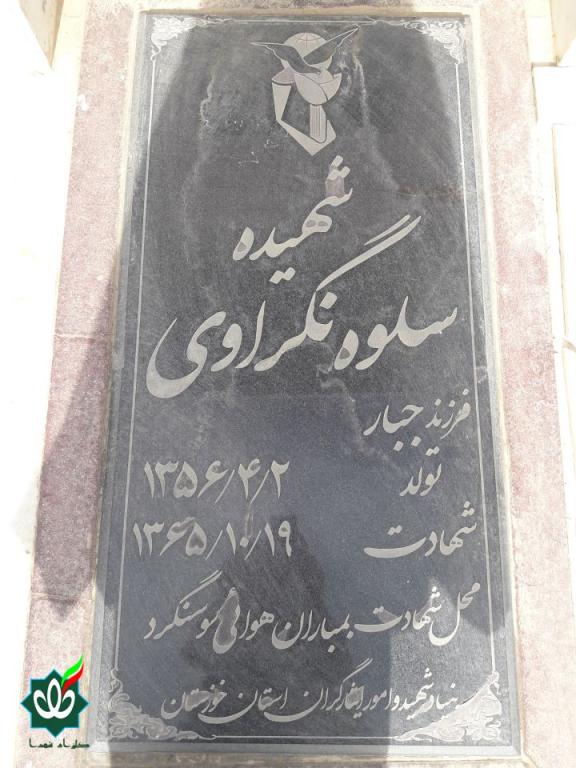 شهیده
سلوه نگراوی
فرزند جبار
تولد ۱۳۵۶/۴/۲
شهادت ۱۳۶۵/۱۰/۱۹
محل شهادت بمباران هوائی سوسنگرد
بنیاد شهید و امور ایثارگران استان خوزستان